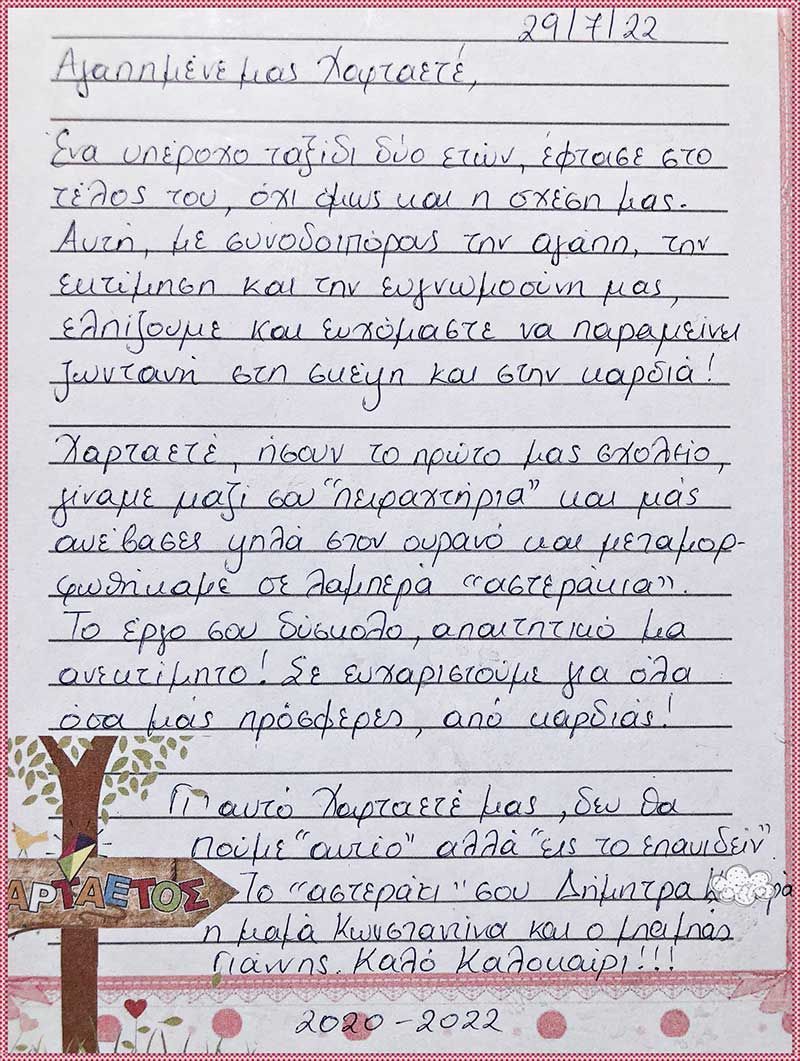 29/7/22
Αγαπημένε μας Χαρταετέ,
Ένα υπέροχο ταξίδι δύο ετών, έφτασε στο
τέλος του, όχι όμως και η σχέση μας.
Αυτή, με συνοδοιπόρους την αγάπη, την
εκτίμηση και την ευγνωμοσύνη μας,
ελπίζουμε και ευχόμαστε να παραμείνει
ζωντανή στη σκέψη και στην καρδιά!
Χαρταετέ, ήσουν το πρώτο μας σχολείο,
γίναμε μαζί σου "πειραχτήρια" και μάς
ανέβασες ψηλά στον ουρανό και μεταμορ-
φωθήκαμε σε λαμπερά "αστεράκια".
Το έργο σου δύσκολο, απαιτητικό μα
ανεκτίμητο! Σε ευχαριστούμε για όλα
όσα μάς πρόσφερες, από καρδιάς!
Γι' αυτό Χαρταετέ μας, δεν θα
πούμε "αντίο" αλλά "εις το επανιδείν".
ΑΡΤΑΕΤΟΣ
Το "αστεράκι" σου Δήμητρα
η μαμά Κωνσταντίνα και ο μπαμπάς
Γιάννης. Καλό Καλοκαίρι!!!
2020-2022